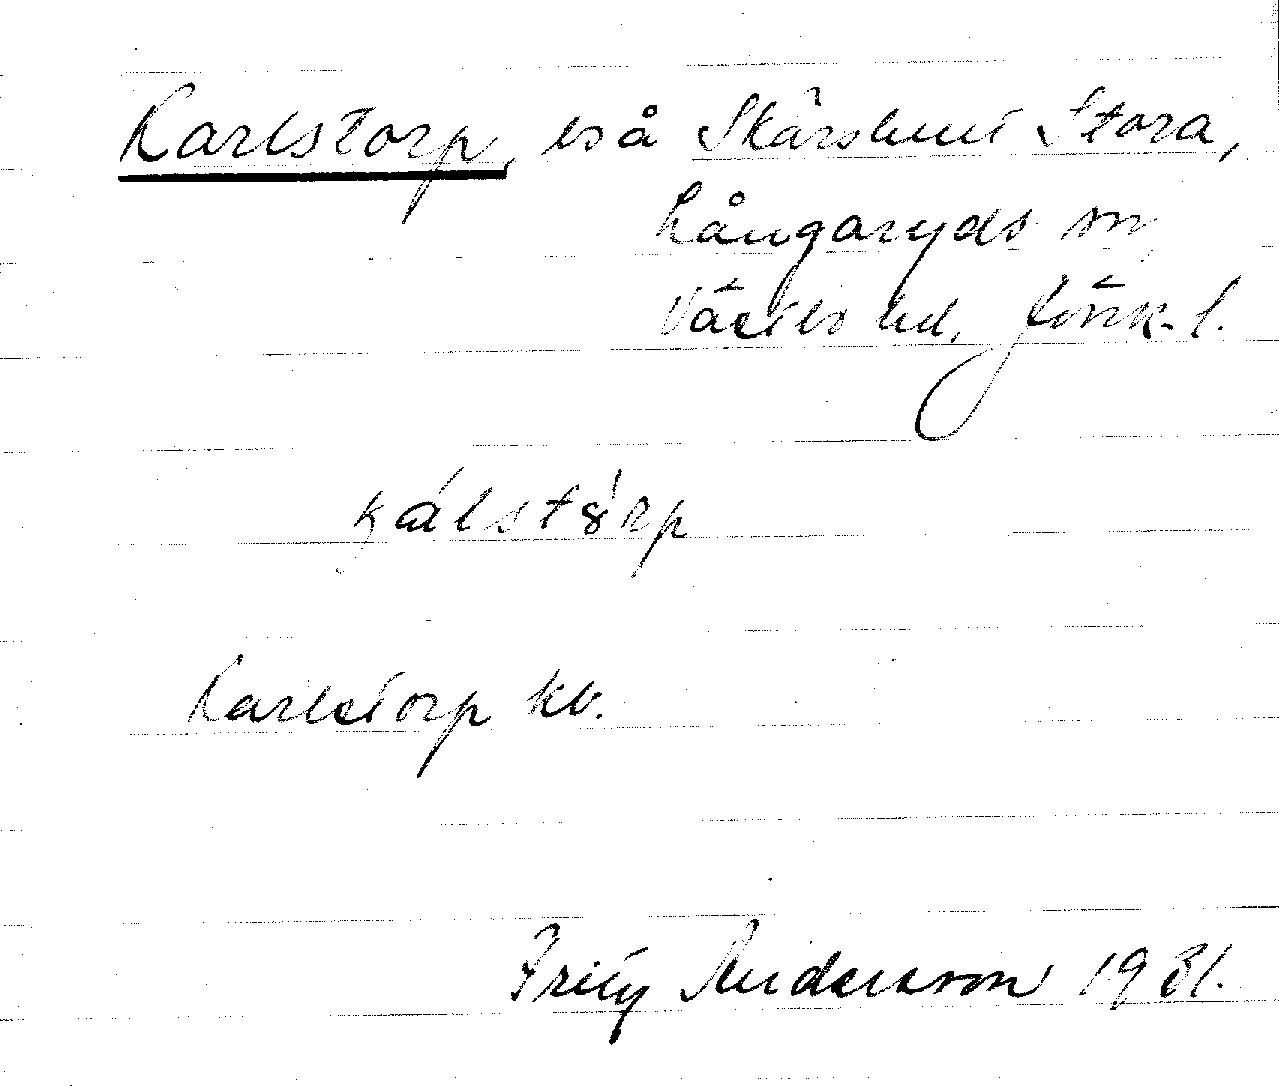 Karlstorp, bs å Skärshult Stora,
Långaryds sn
Västbo hd, Jönk. l.
kálstórp
Karlstorp kb.
Andersson 1931.